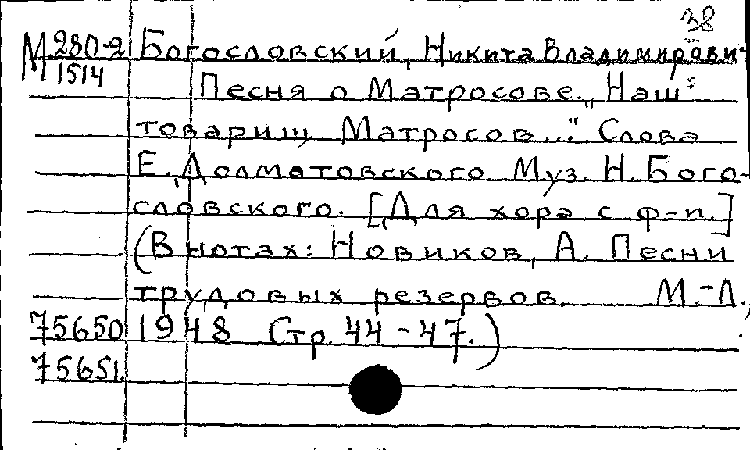 38
М 280-2 Богословский, Никита Владимирови-
1514 Песня о Матросове. „Наш
товарищ Матросов..." Слова
Е. Долматовского. Муз. Н. Бого-
словского. [Для хора с ф-п.]
(В нотах: Новиков, А. Песни
трудовых резервов. М.-Л.,
75650 1948 Стр. 44-47.)
75651